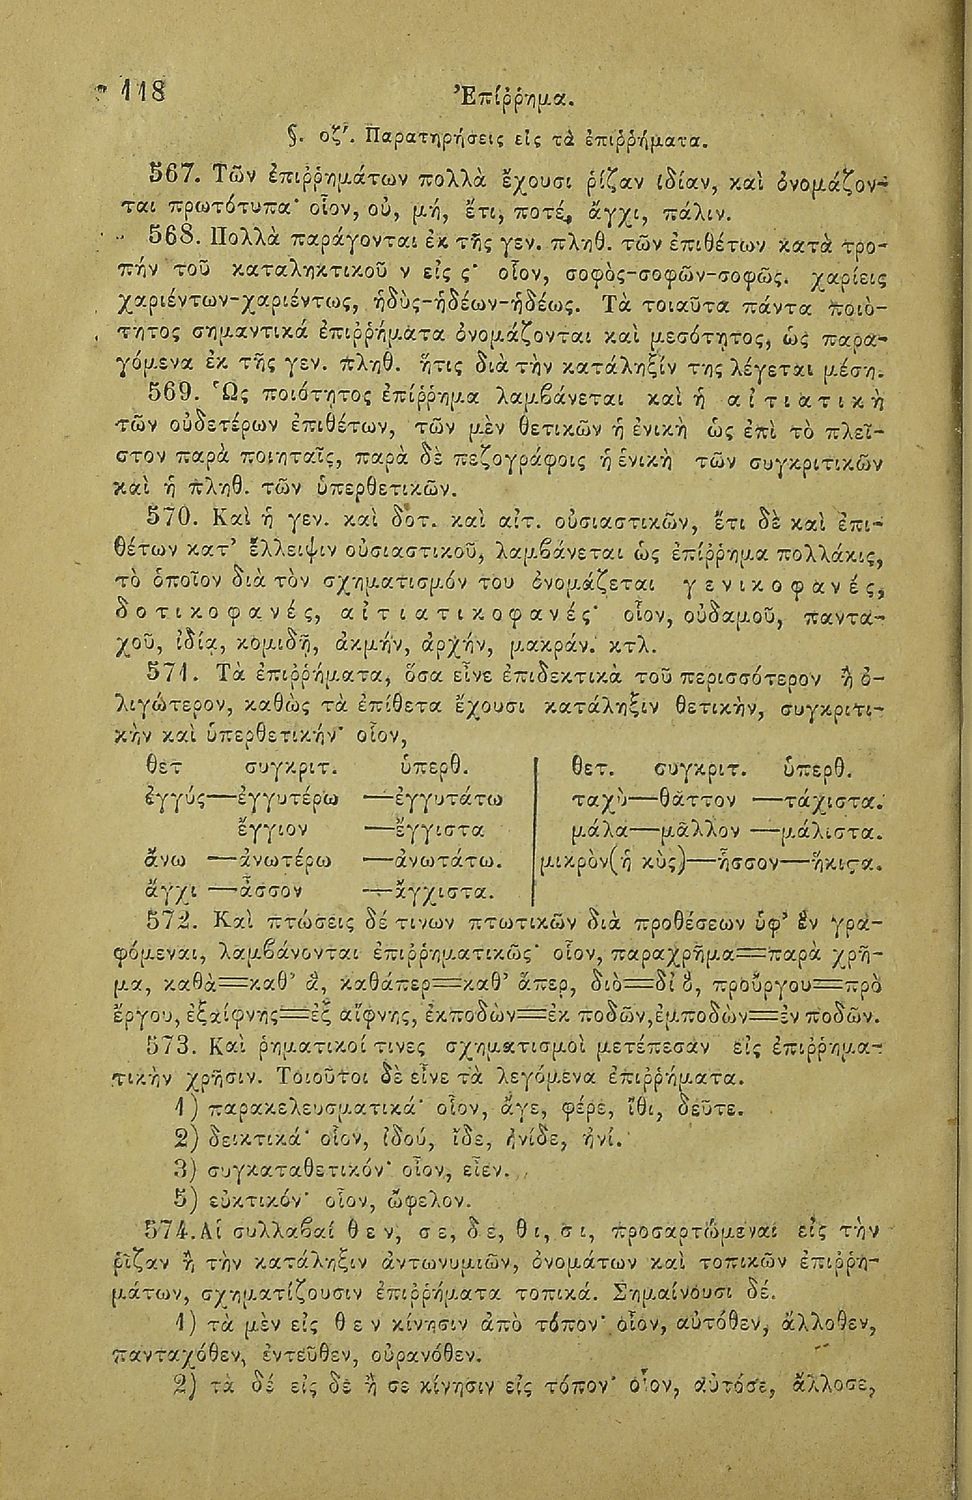 118 Ἐπίῤῥημα.
§. οζ΄. Παρατηρήσεις εἰς τὰ ἐπιῤῥήματα.
567. Τῶν ἐπιῤῥημάτων πολλὰ ἔχουσι ῥίζαν ἰδίαν, καὶ ὀνομάζον-
ται πρωτότυπα· οἷον, οὐ, μή, ἔτι, ποτέ, ἄγχι, πάλιν.
568. Πολλὰ παράγονται ἐκ τῆς γεν. πληθ. τῶν ἐπιθέτων κατὰ τρο-
πήν τοῦ καταληκτικοῦ ν εἰς ς· οἷον, σοφὸς-σοφῶν-σοφῶς. χαρίεις
χαριέντων-χαριέντως, ἡδὺς-ἡδέων-ἡδέως. Τὰ τοιαῦτα πάντα ποιό-
τητος σημαντικά ἐπιῤῥήματα ὀνομάζονται καὶ μεσότητος, ὡς παρα-
γόμενα ἐκ τῆς γεν. πληθ. ἥτις διὰ τὴν κατάληξίν της λέγεται μέση.
569. Ὡς ποιότητος ἐπίῤῥημα λαμβάνεται καὶ ἡ αἰτιατικὴ
τῶν οὐδετέρων ἐπιθέτων, τῶν μὲν θετικῶν ἡ ἑνικὴ ὡς ἐπὶ τὸ πλεῖ-
στον παρὰ ποιηταῖς, παρὰ δὲ πεζογράφοις ἡ ἑνικὴ τῶν συγκριτικῶν
καὶ ἡ πληθ. τῶν ὑπερθετικῶν.
570. Καὶ ἡ γεν. καὶ δοτ. καὶ αἰτ. οὐσιαστικῶν, ἔτι δὲ καὶ ἐπι-
θέτων κατ' ἔλλειψιν οὐσιαστικοῦ, λαμβάνεται ὡς ἐπίῤῥημα πολλάκις,
τὸ ὁποῖον διὰ τὸν σχηματισμόν του ὀνομάζεται γενικοφανές,
δοτικοφανές, αἰτιατικοφανές· οἷον, οὐδαμοῦ, παντα-
χοῦ, ἰδίᾳ, κομιδῇ, ἀκμήν, ἀρχήν, μακράν. κτλ.
571. Τὰ ἐπιῤῥήματα, ὅσα εἶνε ἐπιδεκτικὰ τοῦ περισσότερον ἢ ὀ-
λιγώτερον, καθὼς τὰ ἐπίθετα ἔχουσι κατάληξιν θετικὴν, συγκριτι-
κὴν καὶ ὑπερθετικήν· οἷον,
θετ συγκριτ. ὑπερθ. θετ. συγκριτ. ὑπερθ.
ἐγγύς—ἐγγυτέρω —ἐγγυτάτω ταχὺ—θᾶττον —τάχιστα.
ἔγγιον —ἔγγιστα μάλα—μᾶλλον —μάλιστα.
ἄνω —ἀνωτέρω —ἀνωτάτω. μικρὸν(ἡ κὺς)—ἧσσον—ἥκιϛα.
ἄγχι —ἆσσον —ἄγχιστα.
572. Καὶ πτώσεις δέ τινων πτωτικῶν διὰ προθέσεων ὑφ' ἓν γρα-
φόμεναι, λαμβάνονται ἐπιῤῥηματικῶς· οἷον, παραχρῆμα=παρὰ χρῆ-
μα, καθὰ=καθ' ἃ, καθάπερ=καθ' ἅπερ, διὸ=δι ὅ, προὔργου=πρὸ
ἔργου, ἐξαίφνης=ἐξ αἴφνης, ἐκποδὼν=ἐκ ποδῶν,ἐμποδὼν=ἐν ποδῶν.
573. Καὶ ῥηματικοί τινες σχηματισμοὶ μετέπεσαν εἰς ἐπιῤῥημα-
τικὴν χρῆσιν. Τοιοῦτοι δὲ εἶνε τὰ λεγόμενα ἐπιῤῥήματα.
1) παρακελευσματικά· οἷον, ἄγε, φέρε, ἴθι, δεῦτε.
2) δεικτικά· οἷον, ἰδού, ἴδε, ἠνίδε, ἠνί.
3) συγκαταθετικόν· οἷον, εἶεν.
5) εὐκτικόν· οἷον, ὤφελον.
574. Αἱ συλλαβαί θεν, σε, δε, θι, σι, προσαρτώμεναι εἰς τὴν
ῥίζαν ἢ τὴν κατάληξιν ἀντωνυμιῶν, ὀνομάτων καὶ τοπικῶν ἐπιῤῥη-
μάτων, σχηματίζουσιν ἐπιῤῥήματα τοπικά. Σημαίνουσι δέ.
1) τὰ μὲν εἰς θεν κίνησιν ἀπὸ τόπον· οἷον, αὐτόθεν, ἄλλοθεν,
πανταχόθεν, ἐντεῦθεν, οὐρανόθεν.
2) τὰ δέ εἰς δε ἢ σε κίνησιν εἰς τόπον· οἷον, αὐτόσε, ἄλλοσε,